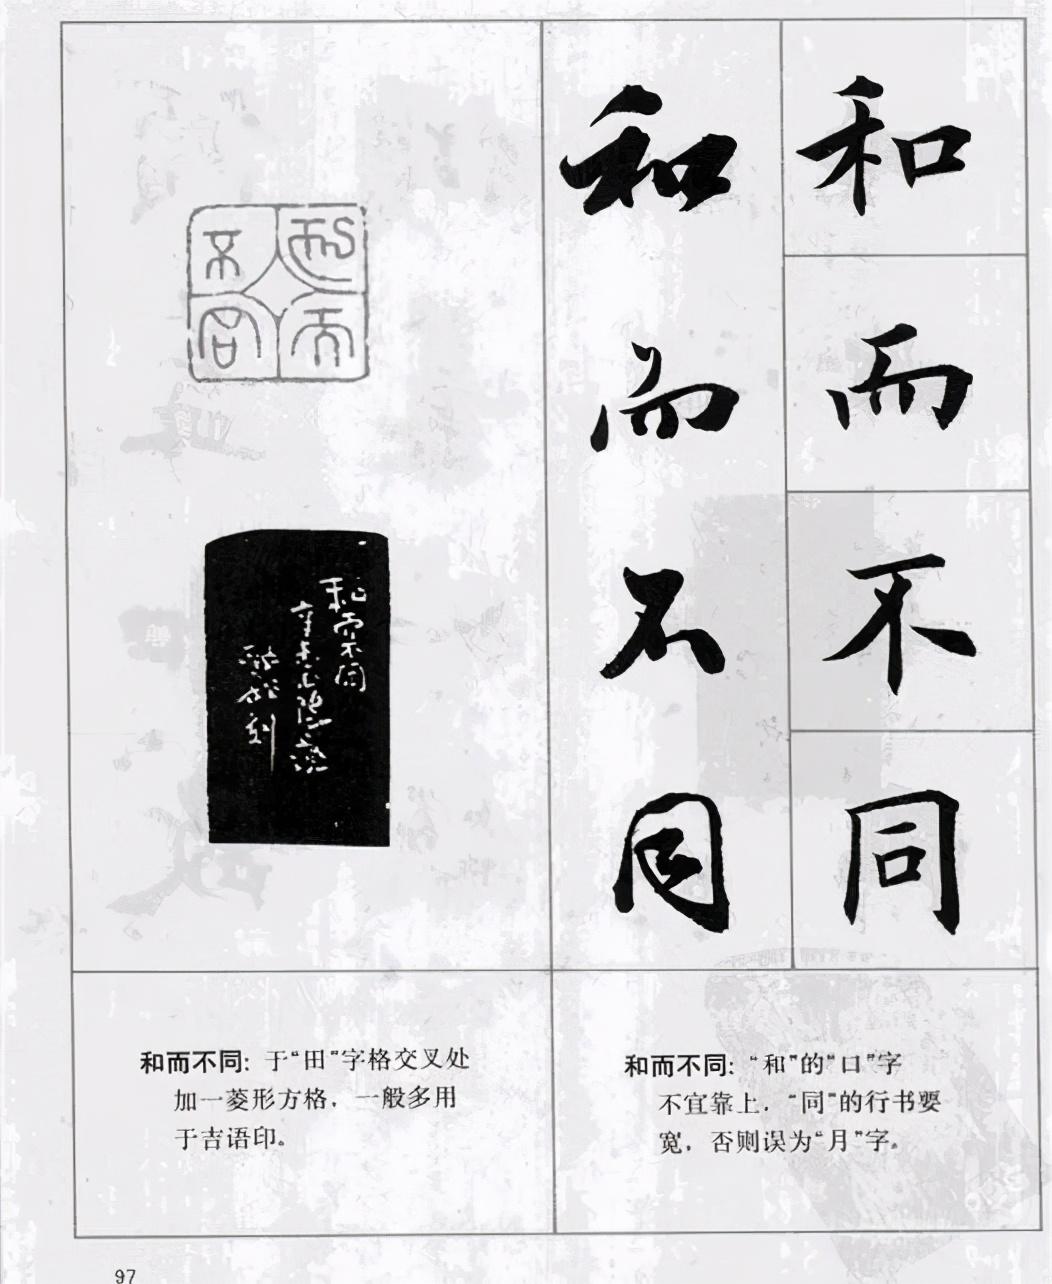 和而不同
和而不同
和而不同
和而不同
和而不同:于“田”字格交叉处
加一菱形方格，一般多用
于吉语印。
和而不同:“和”的“口”字
不宜靠上，“同”的行书要
宽，否则误为“月”字。
97